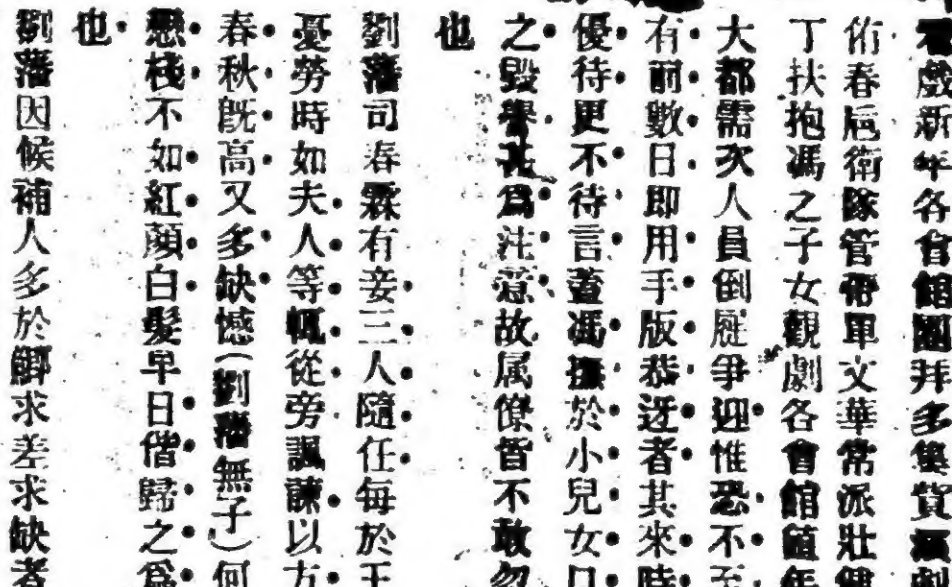 戲新年各會館團拜多集貲演劇
佑春巵衛隊管帶單文華常派壯健
丁扶抱馮之子女觀劇各會館値年
大都需次人員倒屣爭迎惟恐不至
有前數日即用手版恭迓者其來時
優待更不待言蓋馮撫於小兒女口
之毀譽甚爲注意故属僚皆不敢忽
也
劉藩司春霖有妾三人隨任每於王
憂勞時如夫人等輒從旁諷諫以方
春秋既高又多缺憾(劉藩無子)何
戀棧不如紅顏白髮早日偕歸之爲
也
劉藩因候補人多於鯽求差求缺者